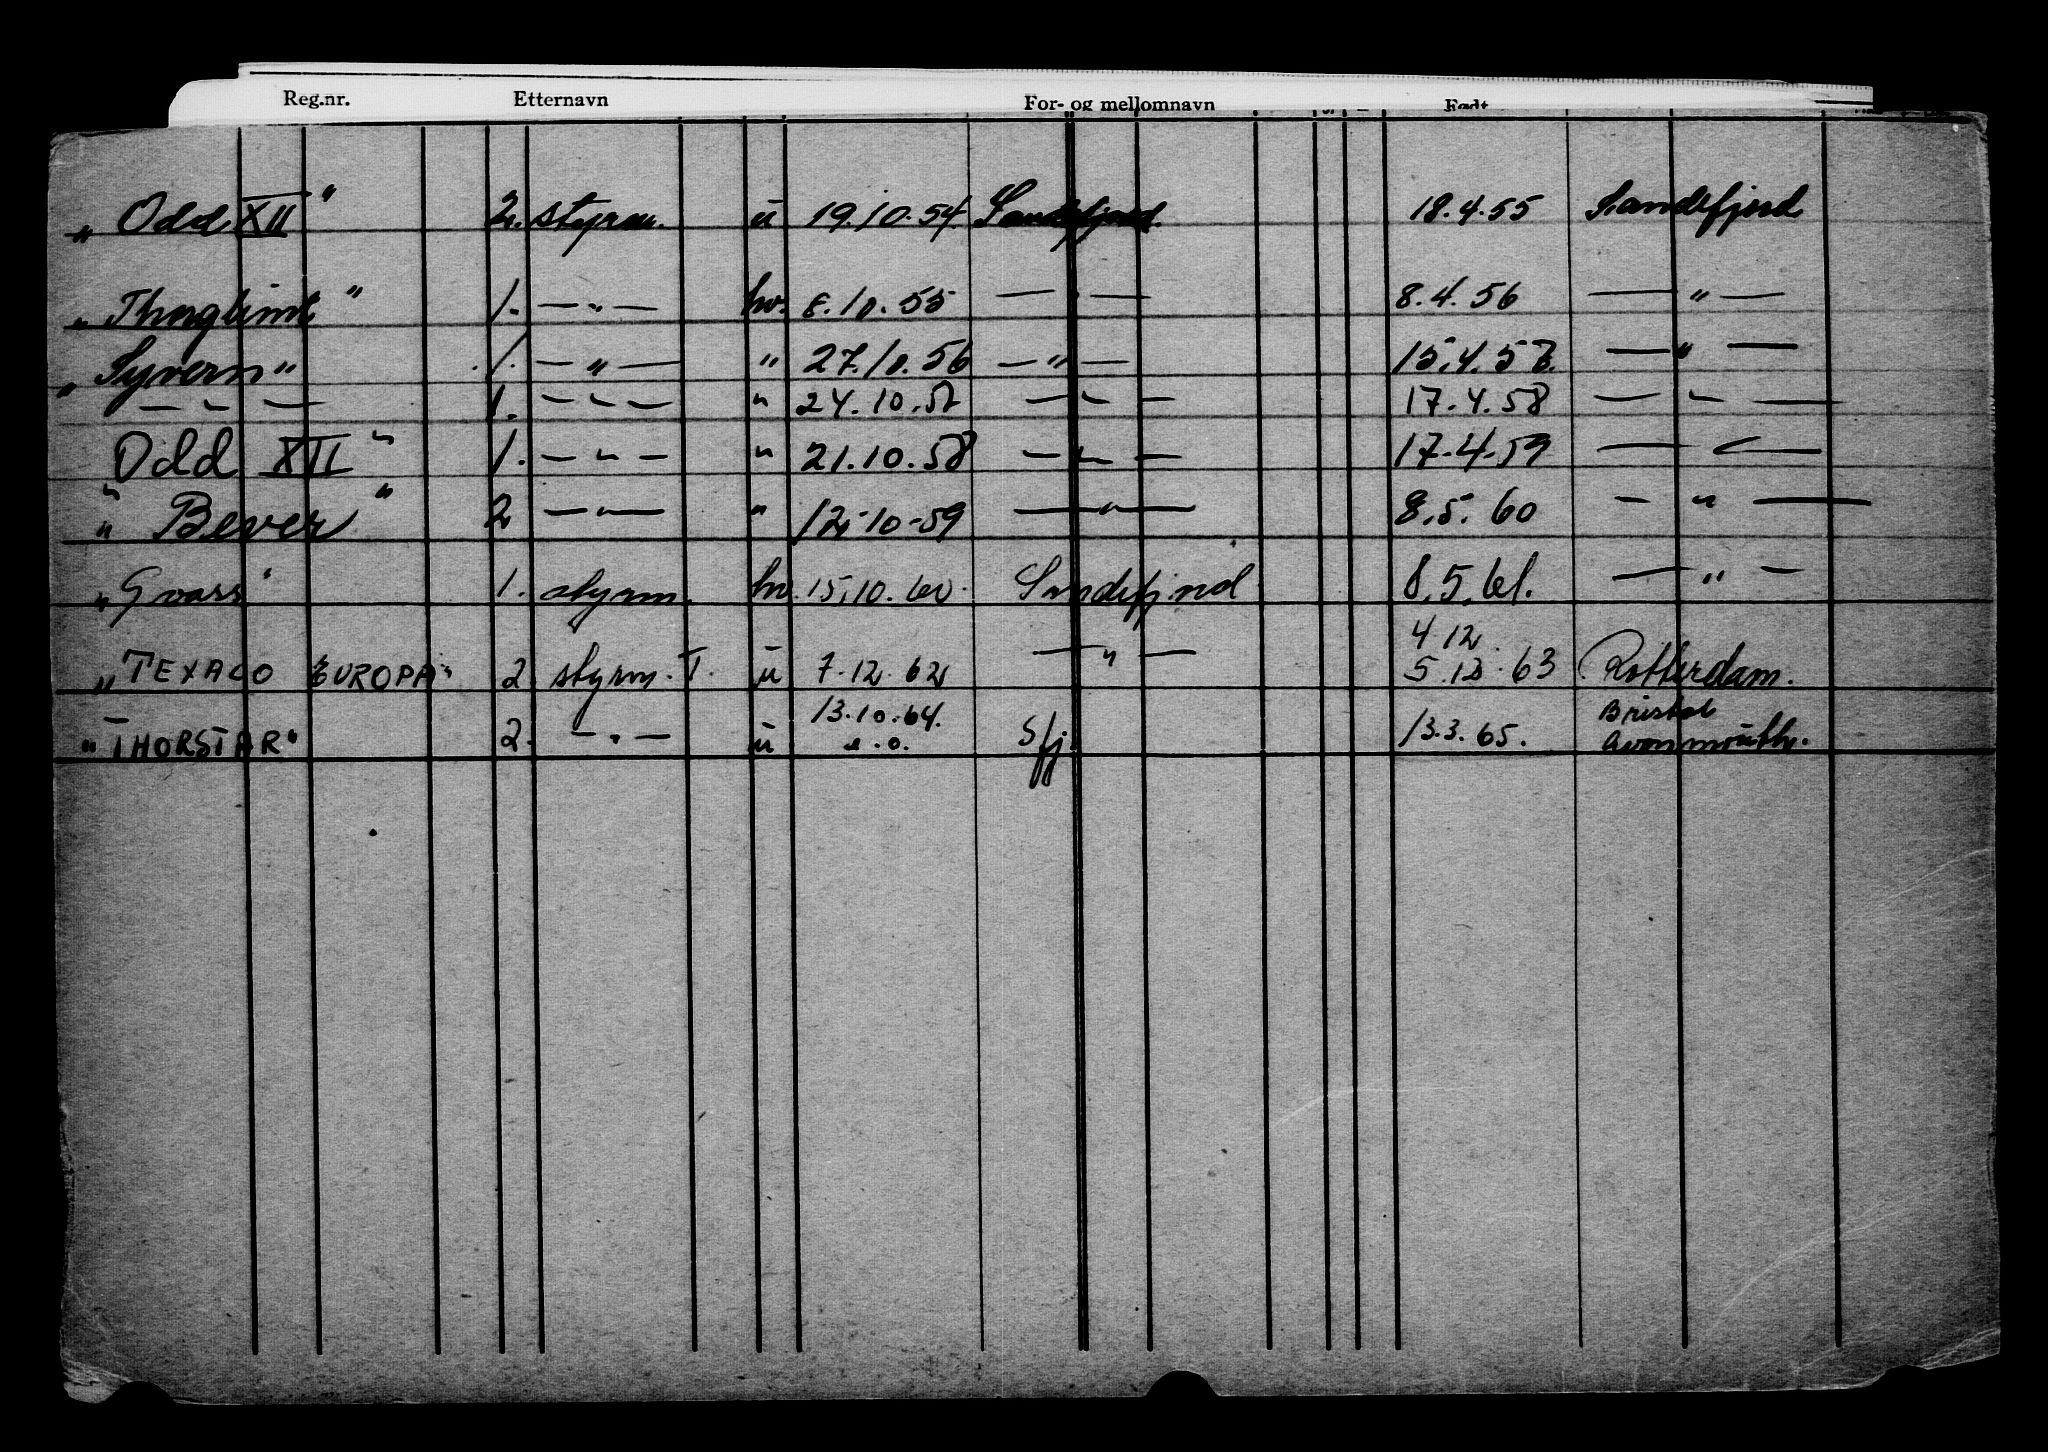 Reg.nr. Etternavn For- og mellomnavn Født
„Odd XII" 2. styrm. u 19.10.54. Sandefjord. 18.4.55 Sandefjord
„Thorglimt" 1. — " — hv. 8.10.55 — " — 8.4.56 — " —
„Syvern" 1. — " — " 27.10.56 — " — 15.4.57. — " —
— " — 1. — " — " 24.10.57 — " — 17.4.58 — " —
„Odd XII" 1. — " — " 21.10.58 — " — 17-4-59 — " —
„Bever" 2 — " — " 12-10-59 — " — 8.5.60 — " —
„Gvass" 1. styrm. hv. 15.10.60. Sandefjord 8.5.61. — " —
4 12
„TEXACO EUROPA" 2. styrm. T. u 7.12.62 — " — 5.12.63 Rotterdam.
13.10.64. Bristol
"THORSTAR" 2. — " — u Sfj 13.3.65. Avonmouth.